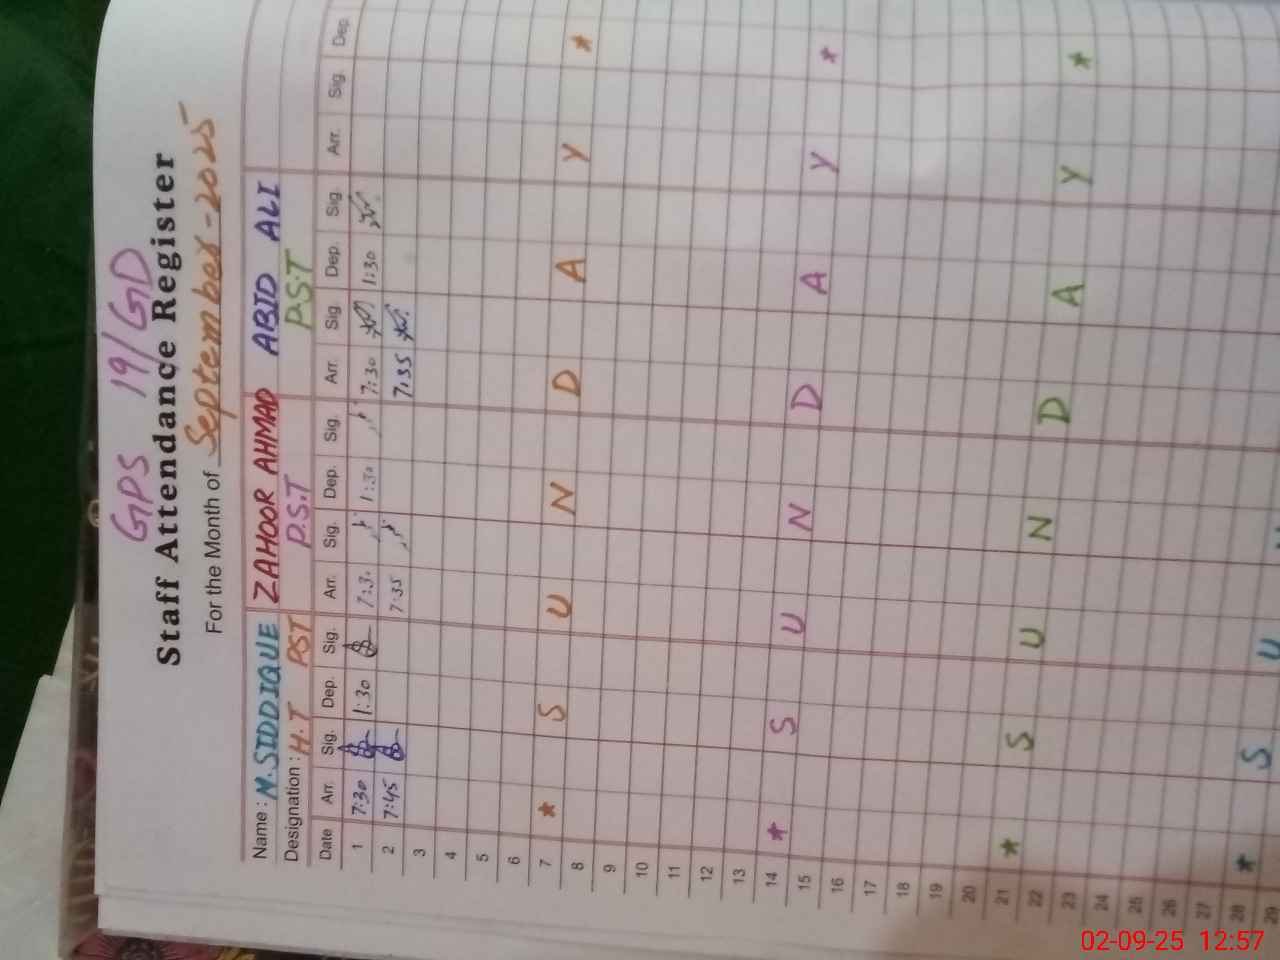 GPS 19/GD
Staff Attendance Register
For the Month of September-2025
Name : M.SIDDIQUE ZAHOOR AHMAD ABID ALI
Designation : H.T PST P.S.T P.S.T
Date Arr. Sig. Dep. Sig. Arr. Sig. Dep. Sig. Arr. Sig Dep. Sig. Arr. Sig. Dep.
1 7:30 1:30 7:30 1:30 7:30 1:30
2 7:45 7:35 7:35
3
4
5
6
7 * S U N D A Y *
8
9
10
11
12
13
14 * S U N D A Y *
15
16
17
18
19
20
21 * S U N D A Y *
22
23
24
25
26
27
28 * S U
29
02-09-25 12:57